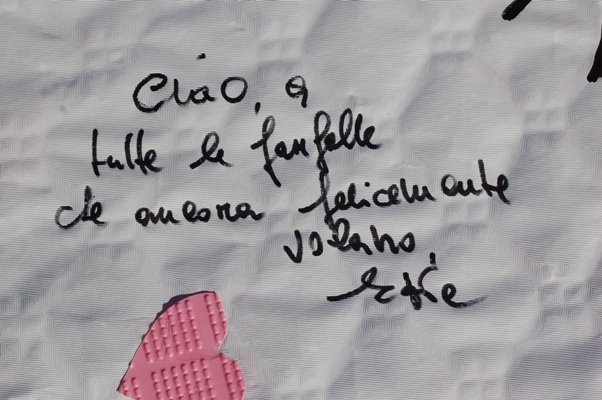 Ciao, a
tutte le farfalle
che ancora felicemente
volano